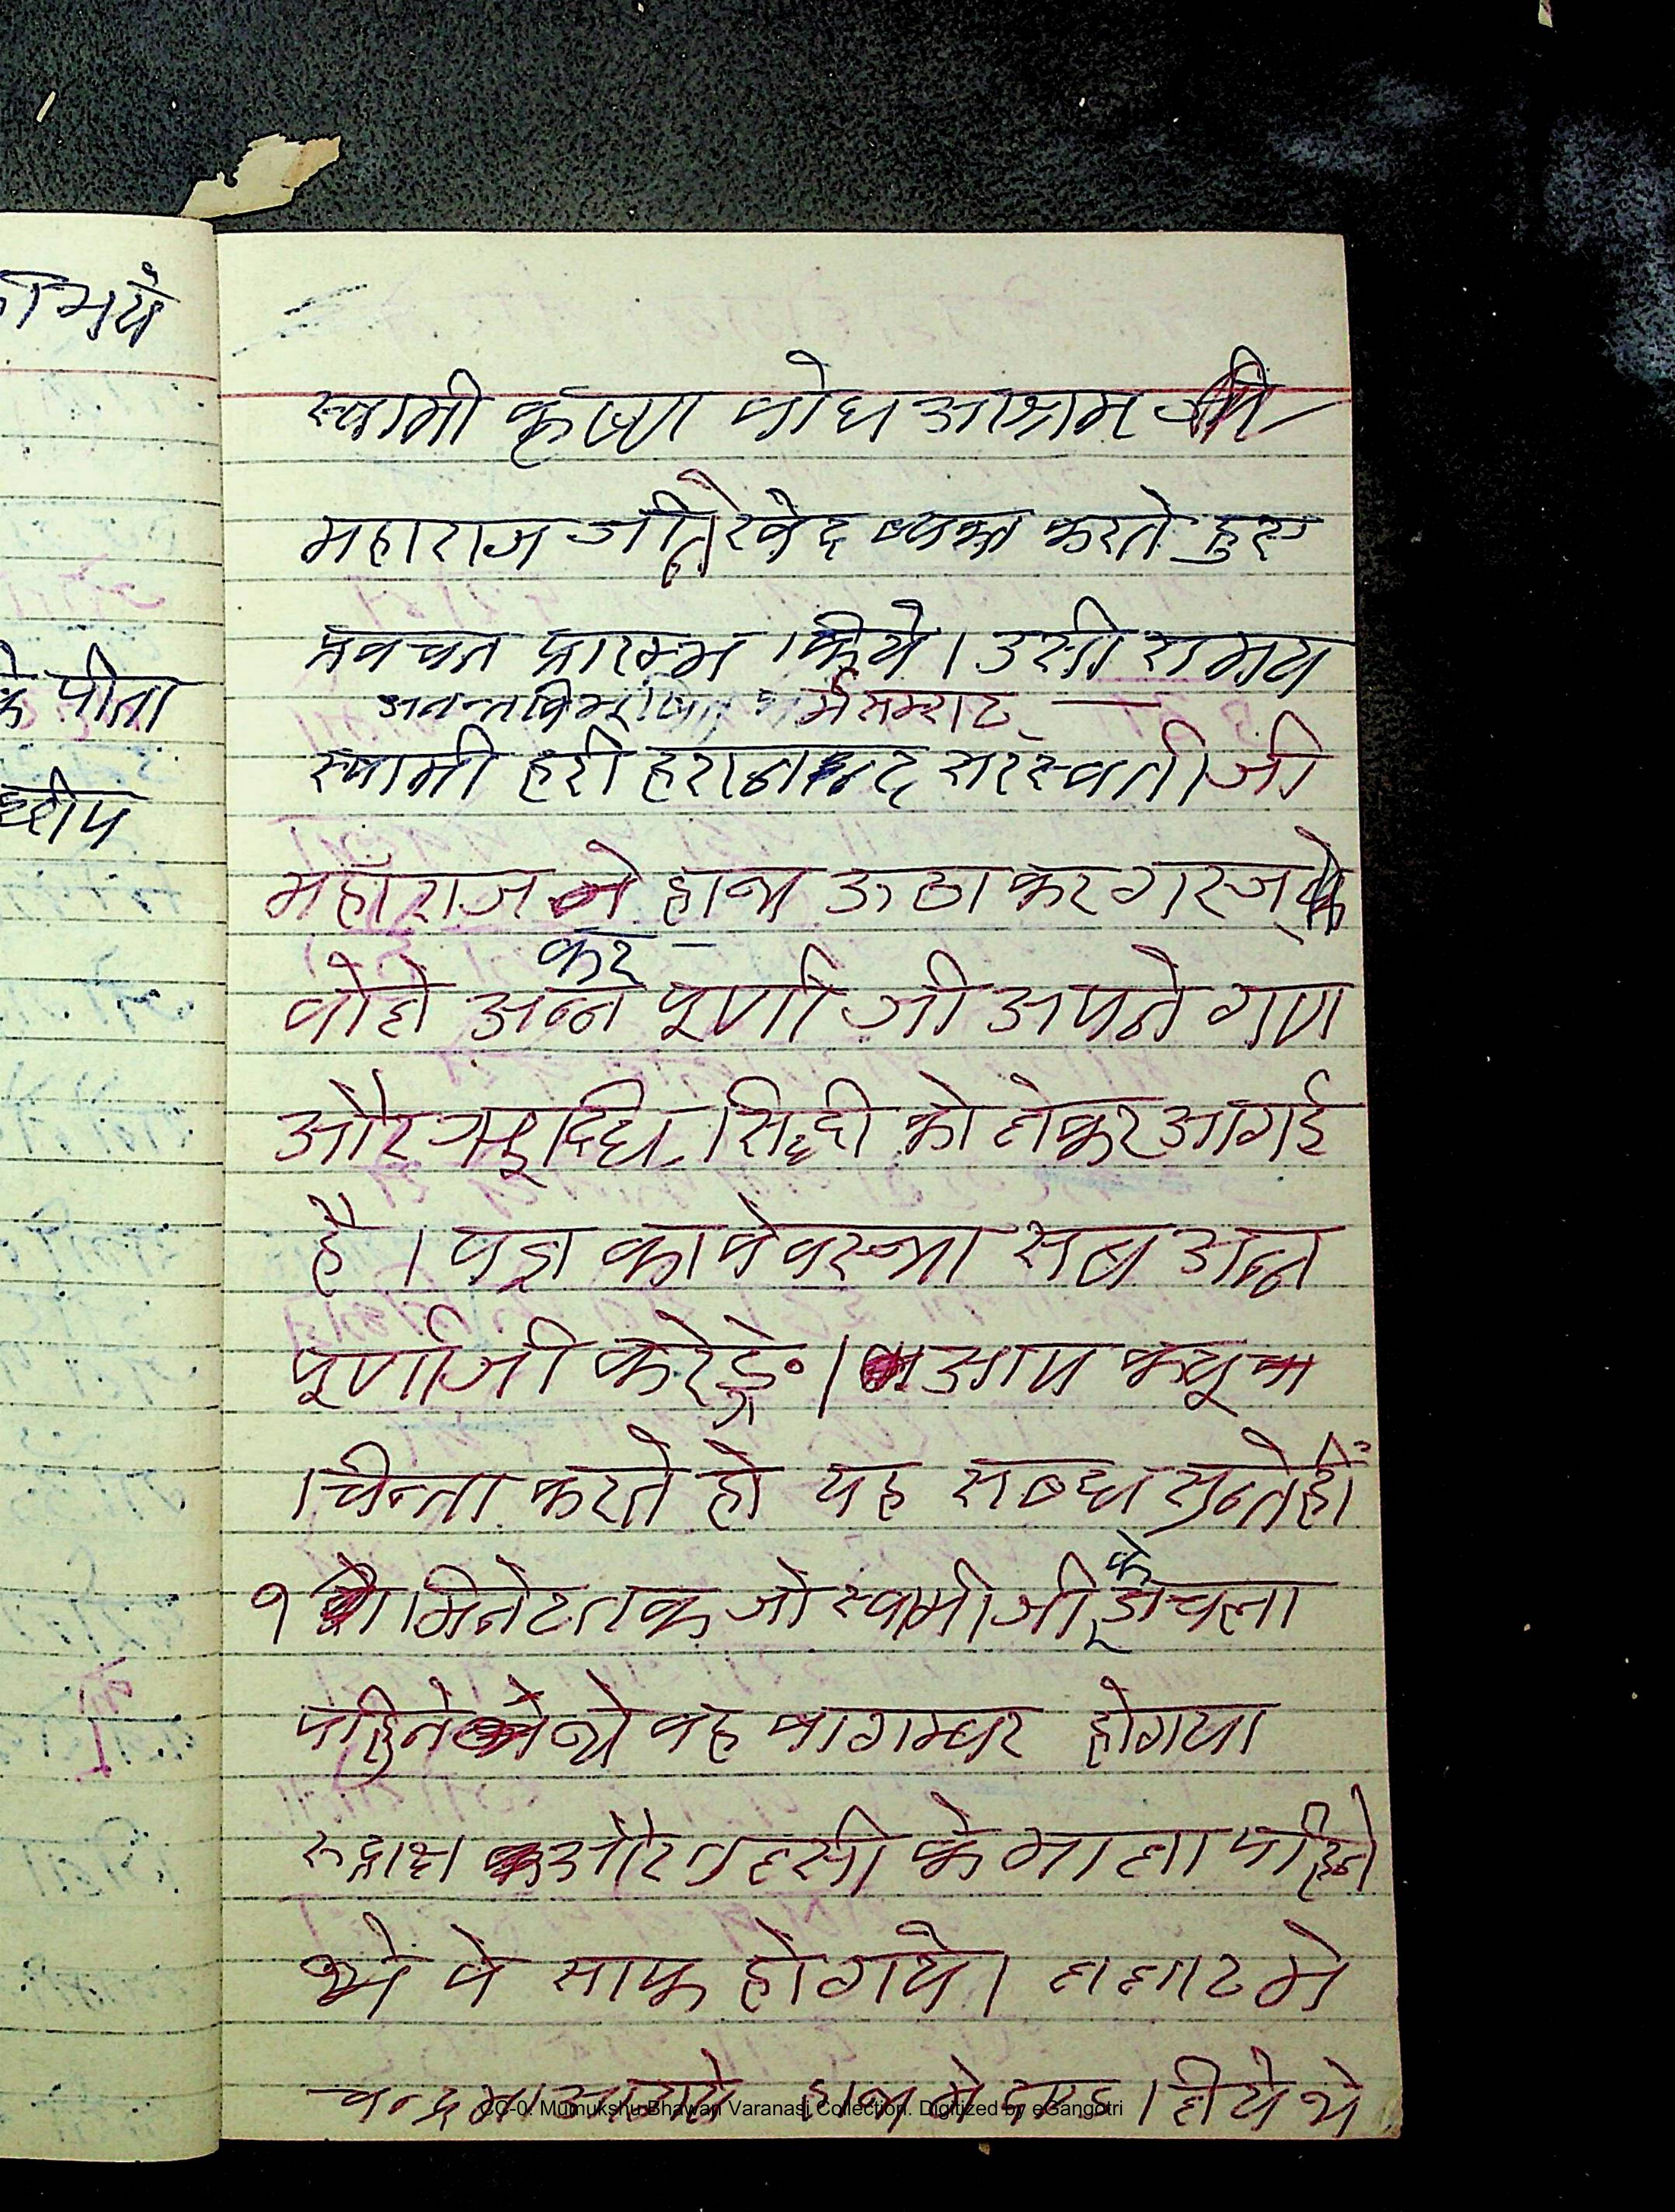 स्वामी कृष्ण वोध आश्रम जी
महाराज जी ने खेद व्यक्त करते हुए
प्रवचन प्रारम्भ किये। उसी समय
अनन्त विभूषित धर्म सम्राट —
स्वामी हरी हरानन्द सरस्वती जी
महाँराज ने हाथ ऊठा कर गरज के
कर
वोले अन्न पूर्णा जी अपने गण
और ऋद्धि सिद्दी को लेकर आगई
है । यज्ञ का वेवस्था सब अन्न
पूर्णा जी करेङ्गे। आप क्यू
चिन्ता करते हो यह सब्द सुन्तेही
के
१ मिनेट तक जो स्वामी जी चला
पहिने थे वह वागम्वर होगया
रूद्राक्ष और तुलसी के माला पहिने
थे वे साफ होगये। ललाट मे
चन्द्रमा हाथ मे लिये थे
मये
के पीता
CC-0. Mumukshu Bhawan Varanasi Collection. Digitized by eGangotri